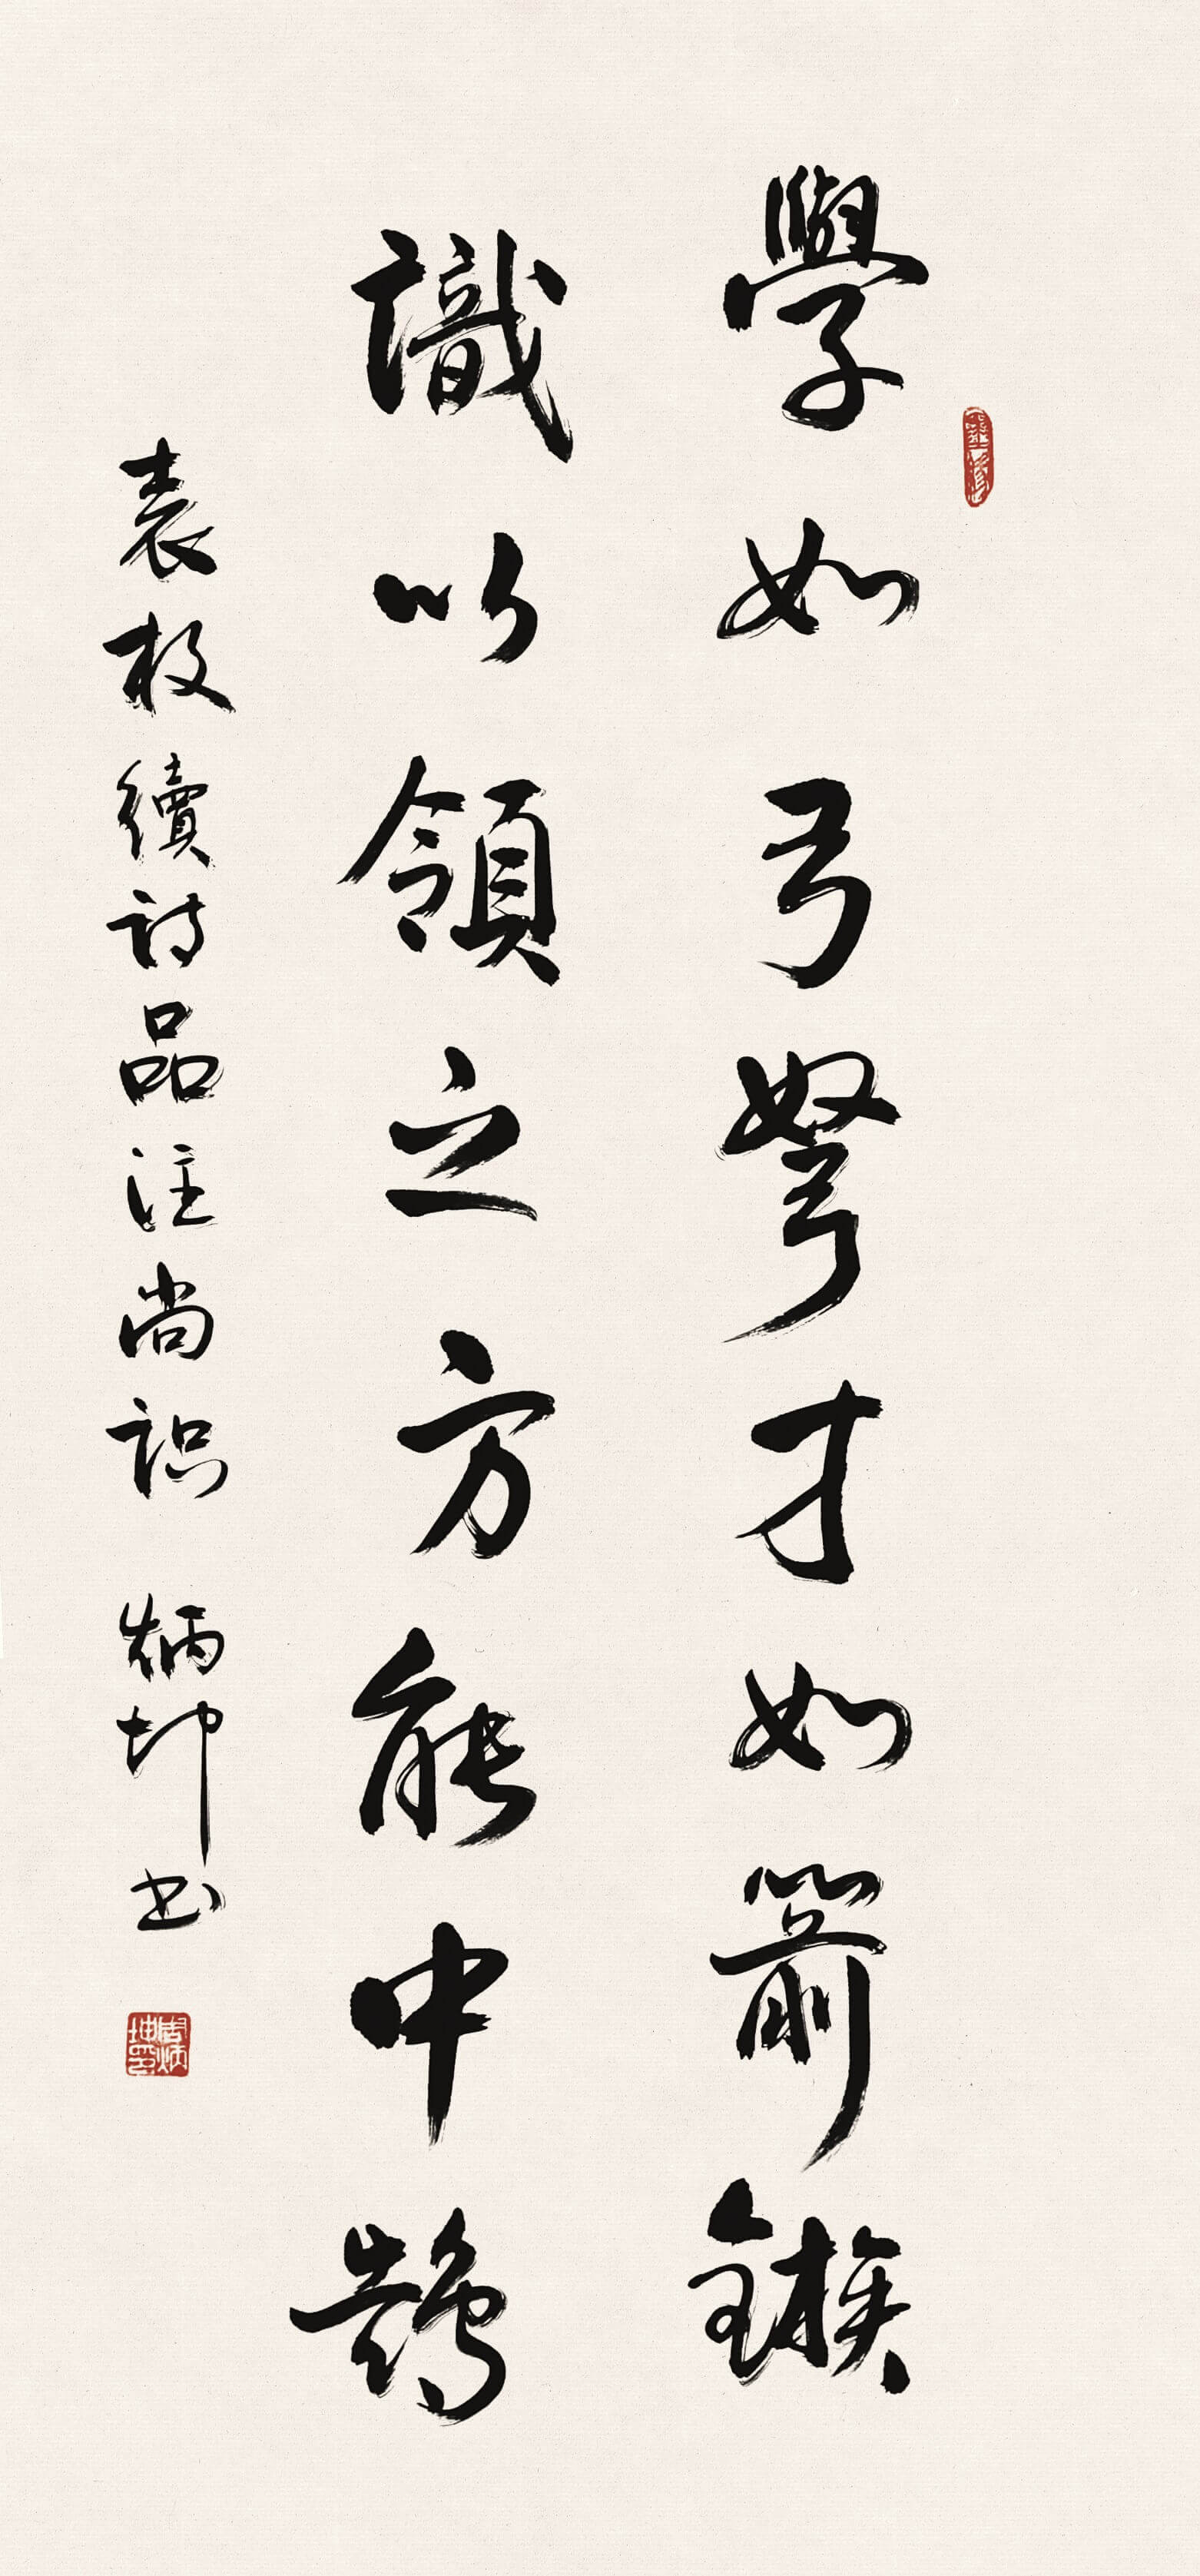 學如弓弩才如箭鏃
識以領之方能中鵠
袁枚續詩品注尚识 炳坤书
周炳坤印